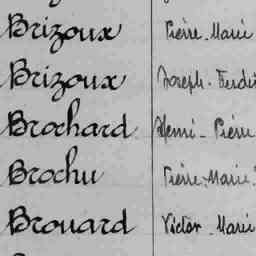 Brizoux Pierre-Marie
Brizoux Joseph-Ferdi
Brochard Henri-Pierre
Brochu Pierre-Marie
Brouard Victor-Marie